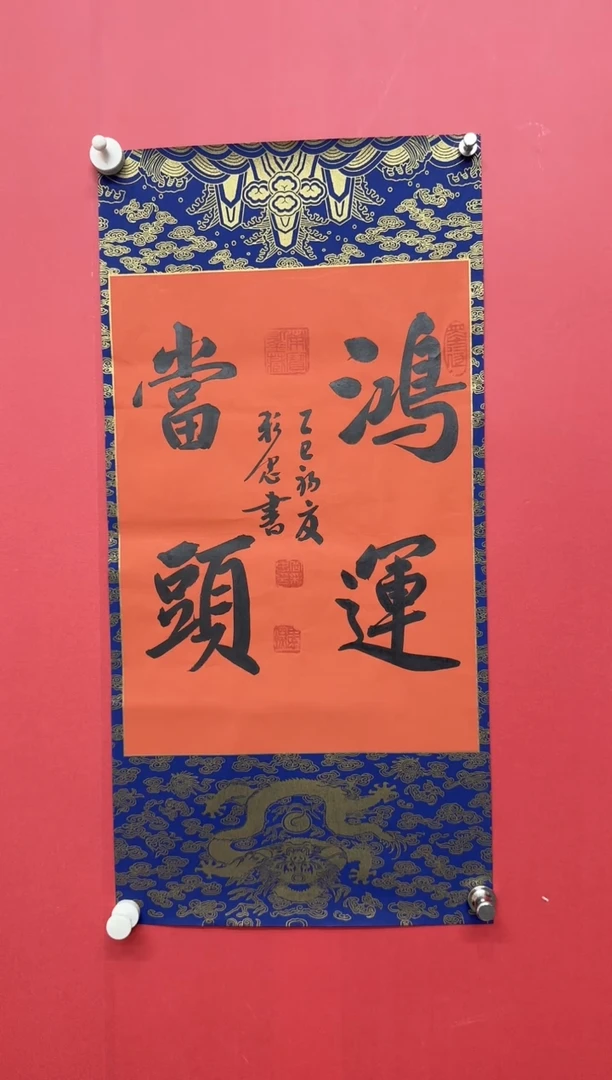 鴻運
當頭
乙巳初夏
書